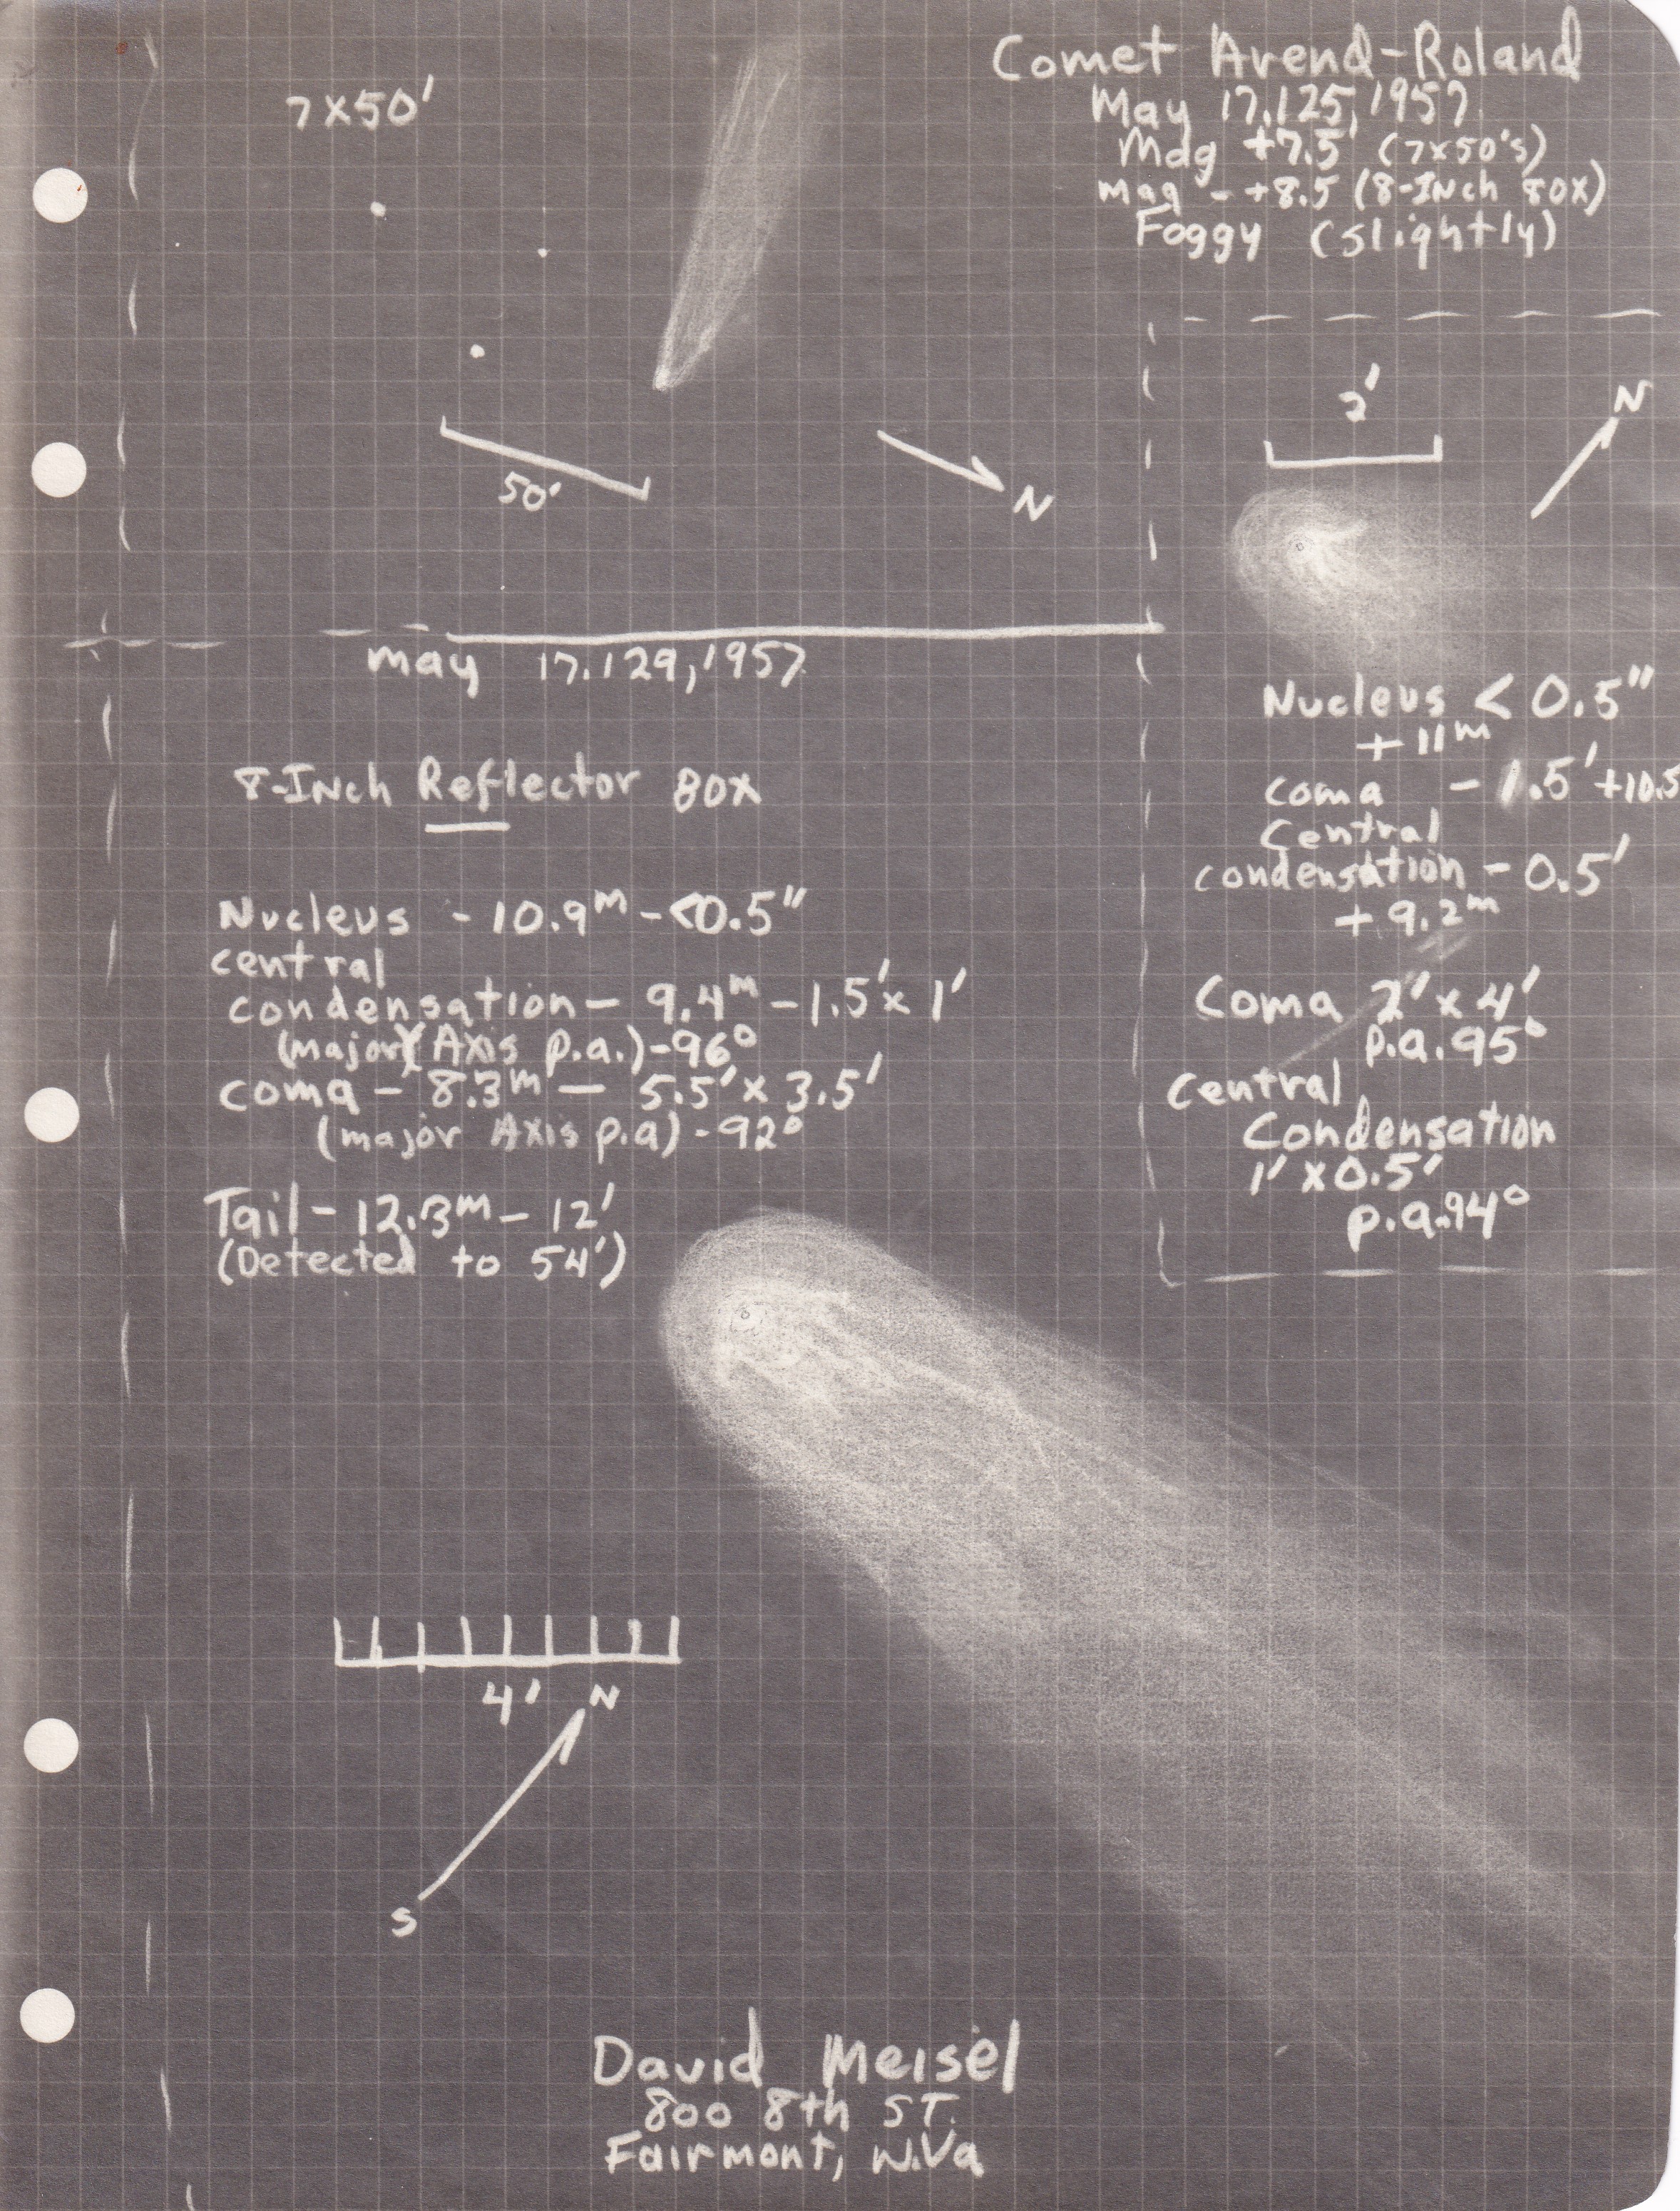 Comet Arend-Roland
May 17.125, 1957
Mag +7.5 (7x50's)
mag - +8.5 (8-INch 80x)
Foggy (slightly)
7x50'
50'
N
2'
N
Nucleus < 0.5"
+11m
coma - 1.5' +10.5
Central
condensation - 0.5'
+9.2m
Coma 2' x 4'
p.a. 95°
Central
Condensation
1' x 0.5'
p.a. 94°
may 17.129, 1957
8-INch Reflector 80x
Nucleus - 10.9m - <0.5"
central
condensation - 9.4m - 1.5' x 1'
(major Axis p.a.) - 96°
coma - 8.3m - 5.5' x 3.5'
(major Axis p.a) - 92°
Tail - 12.3m - 12'
(Detected to 54')
4'
N
S
David Meisel
800 8th ST.
Fairmont, W.Va